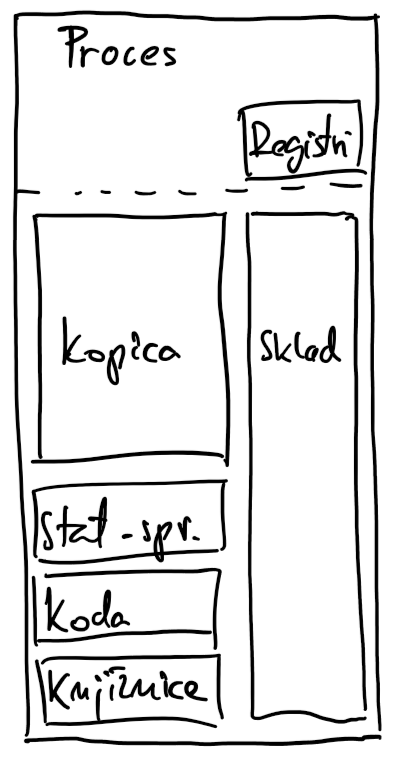 Proces
Registri
Kopica
Sklad
Stat. spr.
Koda
Knjižnice